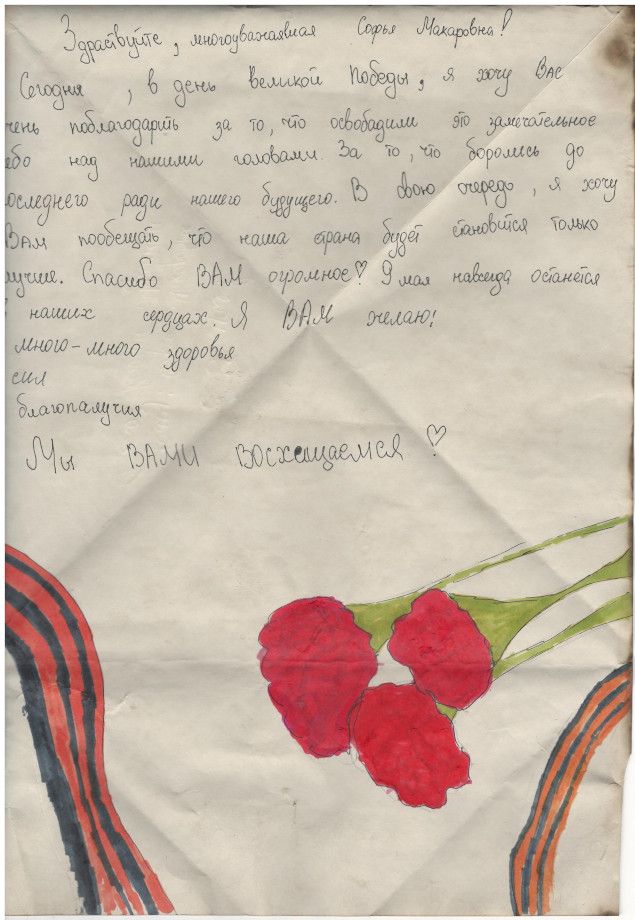 Здраствуйте, многоуважаявмая Софья Макаровна!
Сегодня , в день великой победы, я хочу ВАС
чень поблагодарить за то, что освободили это замечательное
ебо над нашими головами. За то, что боролись до
оследнего ради нашего будущего. В свою очередь, я хочу
ВАМ пообещать, что наша страна будет становится только
лучше. Спасибо ВАМ огромное♡ 9 мая навсегда останется
в наших сердцах. Я ВАМ желаю!
много-много здоровья
сил
благопалучия
Мы ВАМИ ВОСХИЩАЕМСЯ ♡